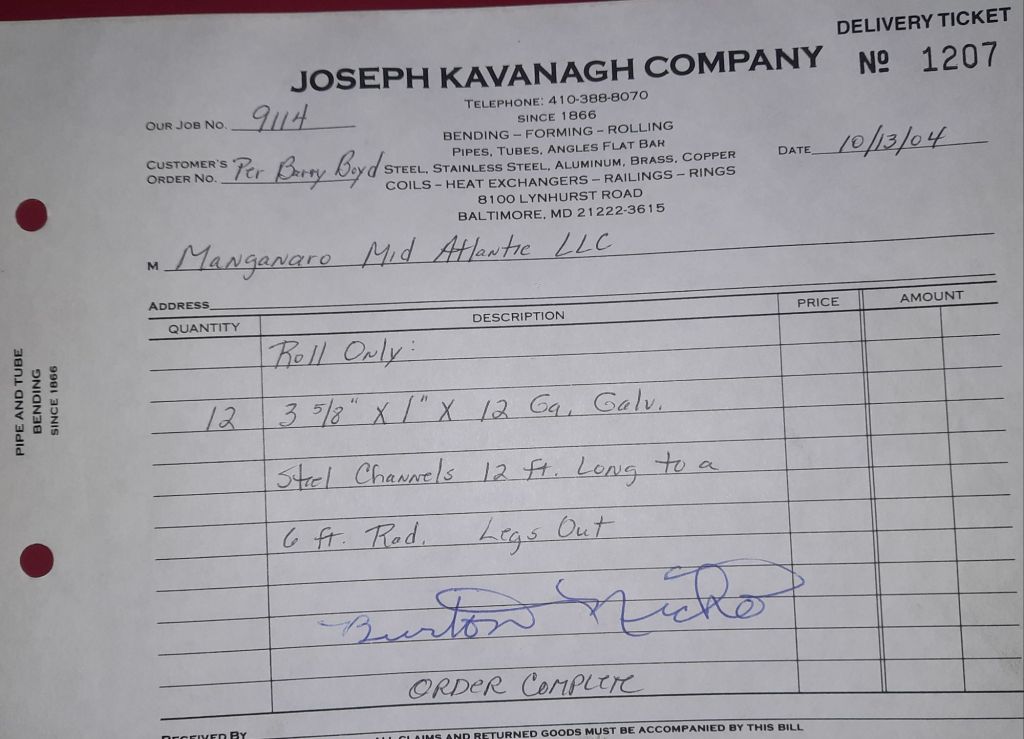 DELIVERY TICKET
Nº 1207
JOSEPH KAVANAGH COMPANY
TELEPHONE: 410-388-8070
SINCE 1866
BENDING – FORMING – ROLLING
PIPES, TUBES, ANGLES FLAT BAR
STEEL, STAINLESS STEEL, ALUMINUM, BRASS, COPPER
COILS – HEAT EXCHANGERS – RAILINGS – RINGS
8100 LYNHURST ROAD
BALTIMORE, MD 21222-3615
OUR JOB NO. 9114
CUSTOMER'S ORDER NO. Per Barry Boyd
DATE 10/13/04
M Manganaro Mid Atlantic LLC
ADDRESS
QUANTITY DESCRIPTION PRICE AMOUNT
Roll Only:
12 3 5/8" X 1" X 12 Ga. Galv.
Steel Channels 12 ft. Long to a
6 ft. Rad. Legs Out
Burton
ORDER COMPLETE
RECEIVED BY
ALL CLAIMS AND RETURNED GOODS MUST BE ACCOMPANIED BY THIS BILL
PIPE AND TUBE
BENDING
SINCE 1866